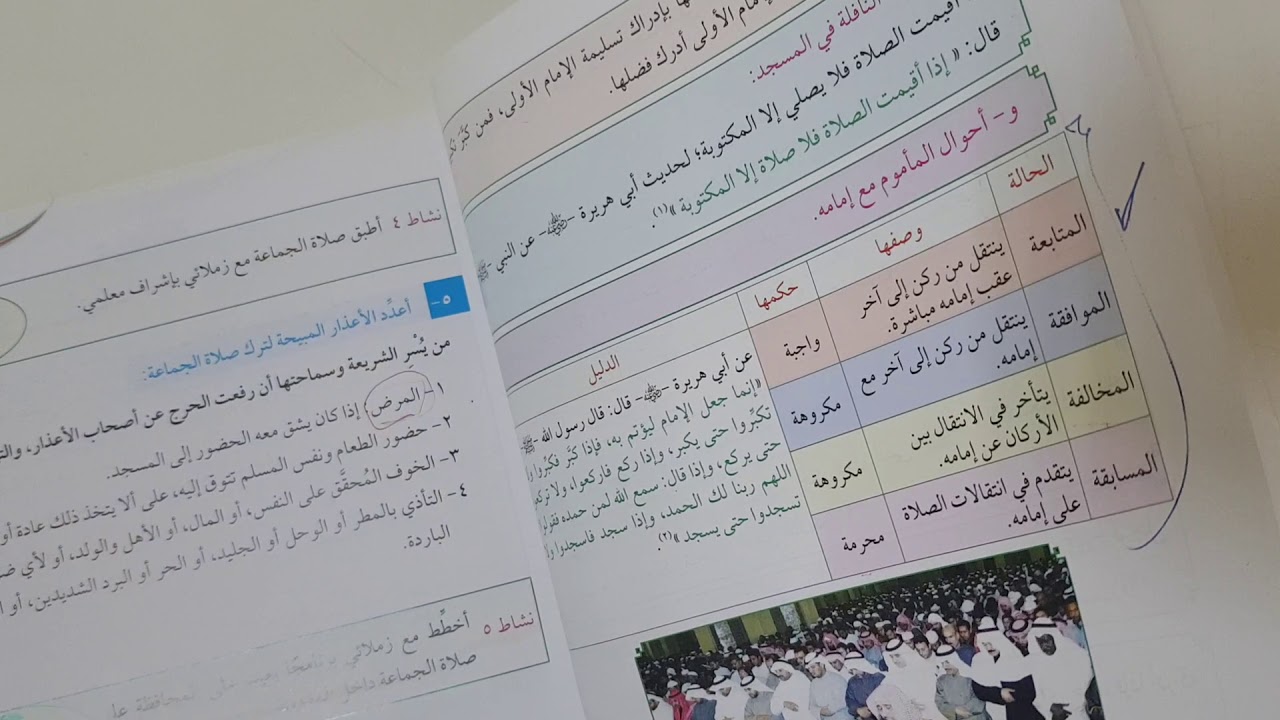 بإدراك تسليمة الإمام الأولى، فمن كبَّر
الإمام الأولى أدرك فضلها.
النافلة في المسجد:
أقيمت الصلاة فلا يصلي إلا المكتوبة؛ لحديث أبي هريرة -ﷺ- عن النبي -ﷺ
قال: « إذا أقيمت الصلاة فلا صلاة إلا المكتوبة »(١).
و- أحوال المأموم مع إمامه.
الحالة
وصفها
حكمها
الدليل
المتابعة
ينتقل من ركن إلى آخر
عقب إمامه مباشرة.
واجبة
الموافقة
ينتقل من ركن إلى آخر مع
إمامه.
مكروهة
المخالفة
يتأخر في الانتقال بين
الأركان عن إمامه.
مكروهة
المسابقة
يتقدم في انتقالات الصلاة
على إمامه.
محرمة
عن أبي هريرة - - قال: قال رسول الله -ﷺ
«إنما جعل الإمام ليؤتم به، فإذا كبَّر فكبِّروا
تكبِّروا حتى يكبر، وإذا ركع فاركعوا، ولا
حتى يركع، وإذا قال: سمع الله لمن حمده
اللهم ربنا لك الحمد، وإذا سجد فاسجدوا
تسجدوا حتى يسجد »(٢).
نشاط ٤ أطبق صلاة الجماعة مع زملائي بإشراف معلمي.
٥- أعدِّد الأعذار المبيحة لترك صلاة الجماعة:
من يُسْرِ الشريعة وسماحتها أن رفعت الحرج عن أصحاب الأعذار،
١- المرض، إذا كان يشق معه الحضور إلى المسجد.
٢- حضور الطعام ونفس المسلم تتوق إليه، على ألا يتخذ ذلك عادة
٣- الخوف المُحقَّق على النفس، أو المال، أو الأهل والولد، أو لأي
٤- التأذي بالمطر أو الوحل أو الجليد، أو الحر أو البرد الشديدين، أو
الباردة.
نشاط ٥ أخطِّط مع زملائي برنامجًا
صلاة الجماعة داخل